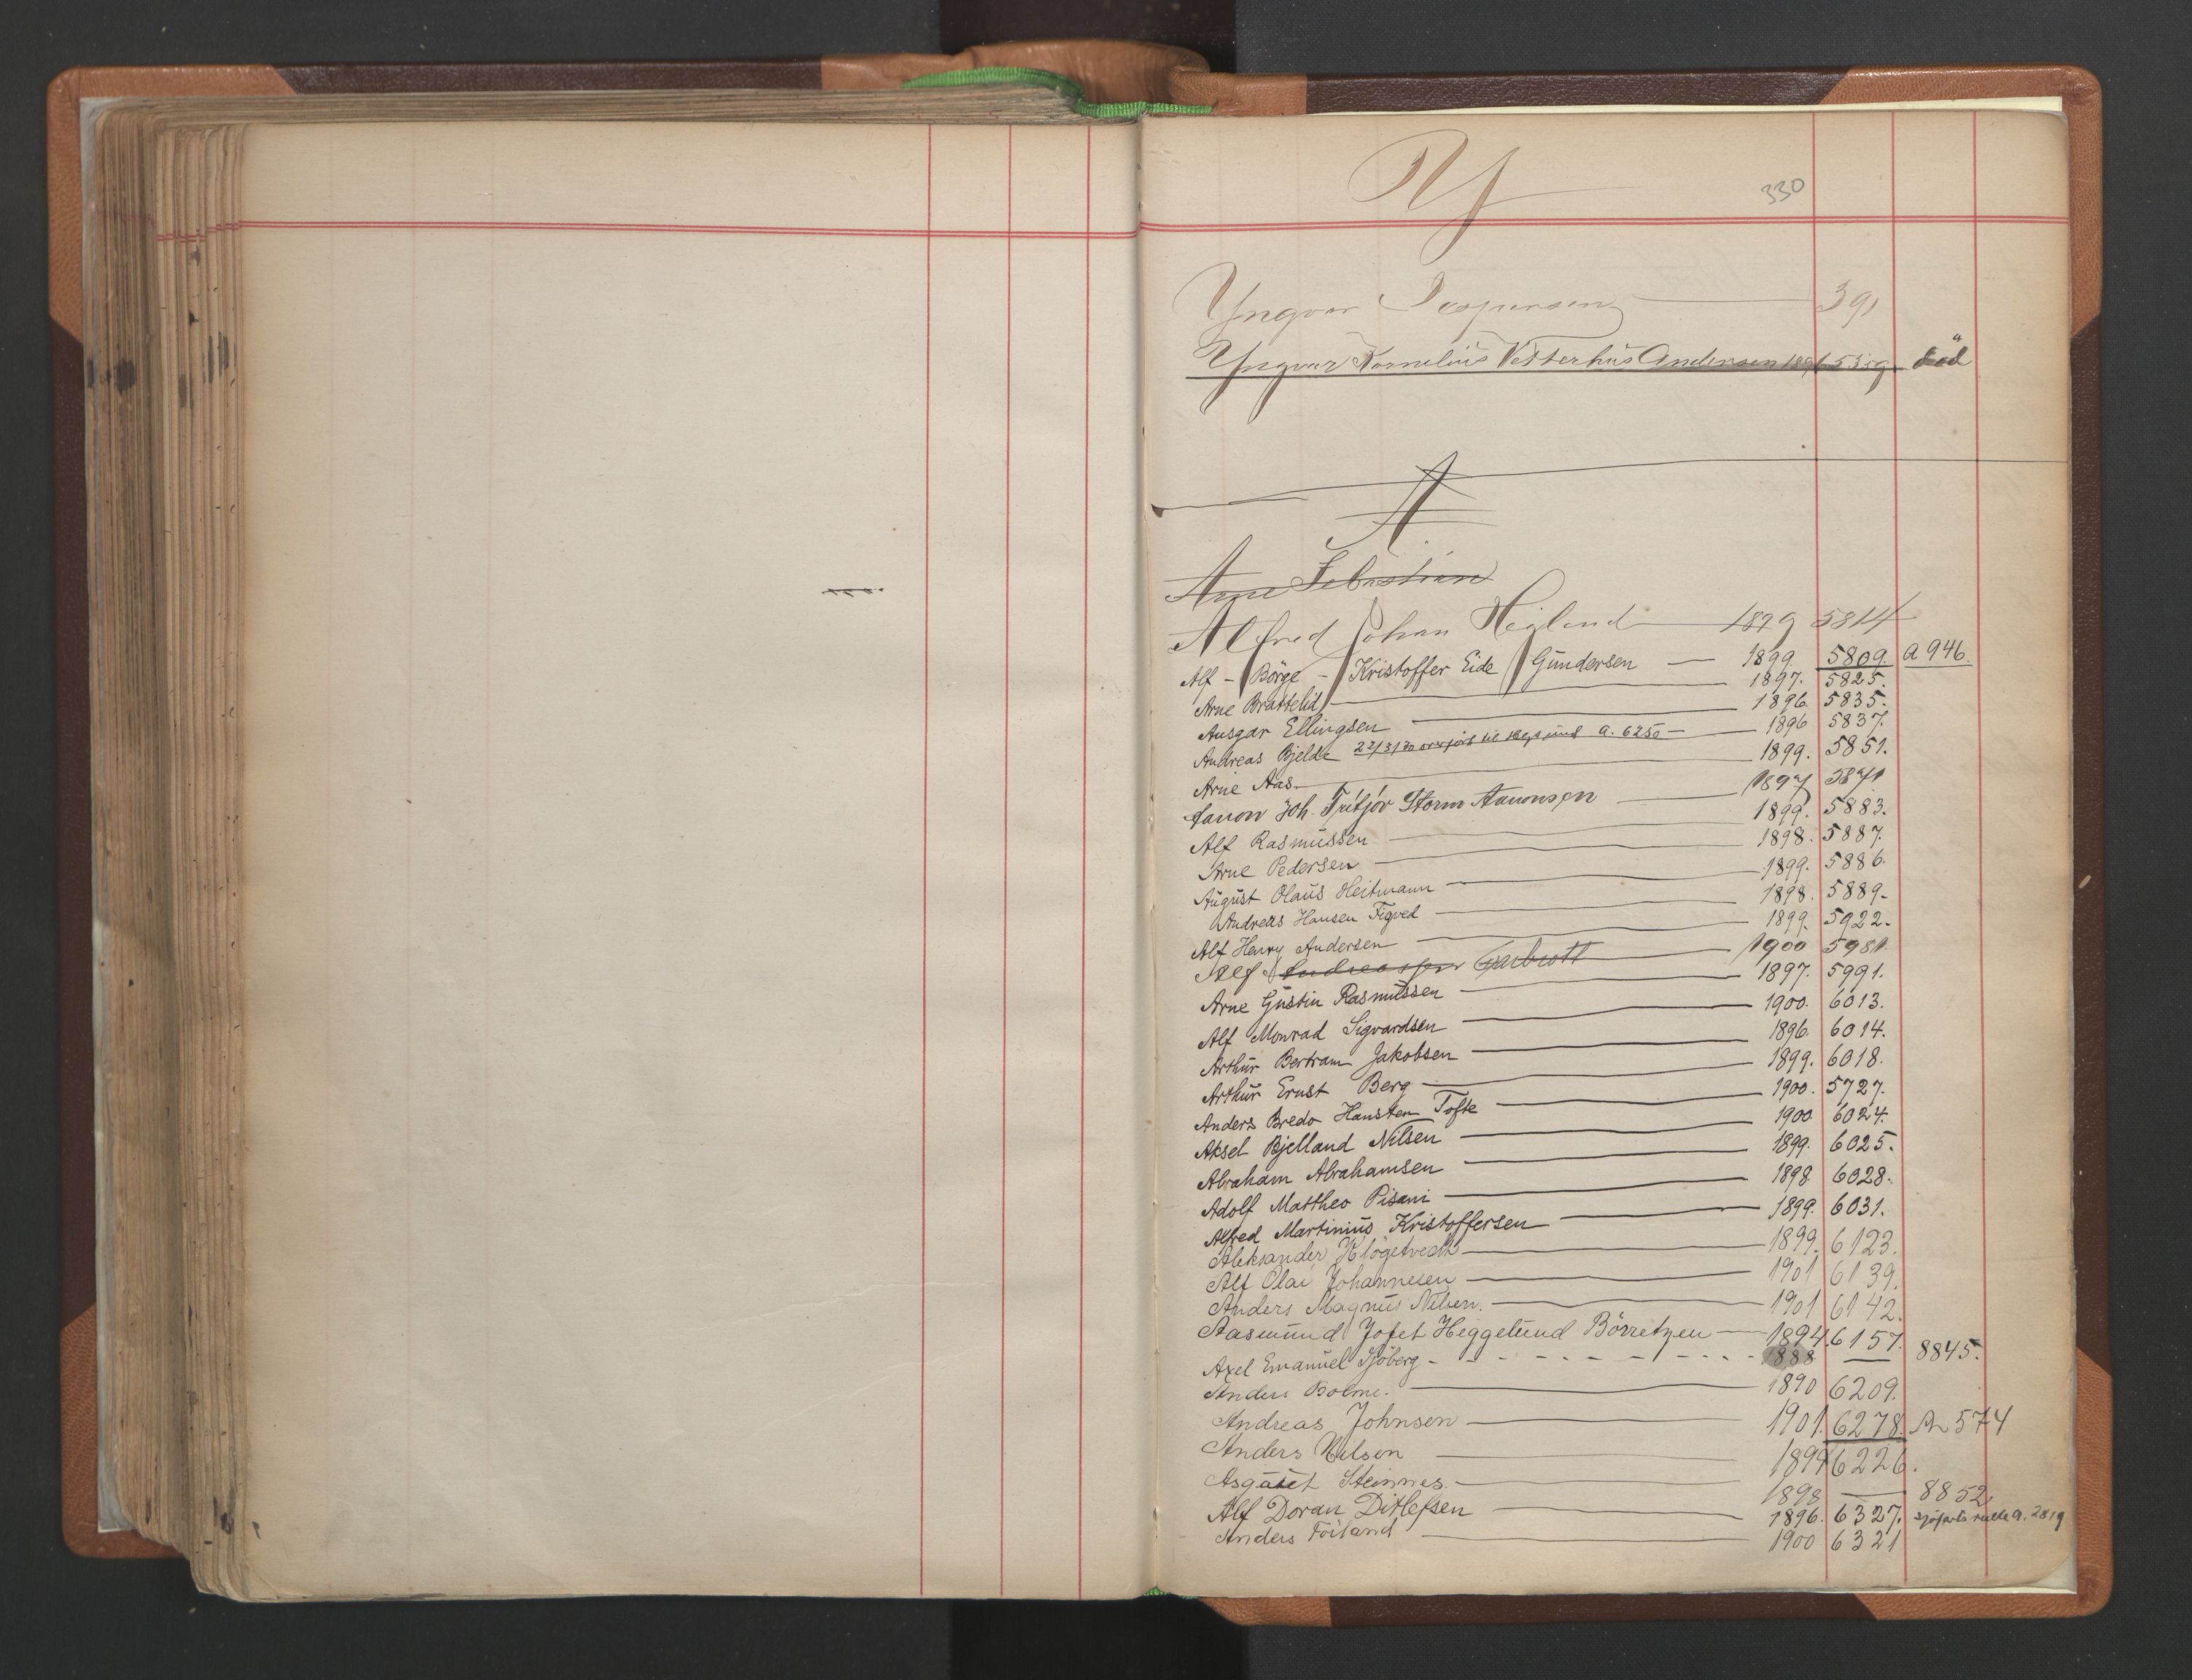 Y
330
Yngvar Jespersen 391
Yngvar Kornelius Vetterhus Andersen 1896 död
A
Arne Sebastian
Alfred Johan Heiland 1899 5814
Alf - Börge - Kristoffer Eide Gundersen 1899. 5809. a 946.
Arne Brattelid 1897. 5825.
Ansgar Ellingsen 1896. 5835.
Andreas Bjelde 22/3/20 overført til a. 6250 1896 5837.
Arne Aas 1899. 5851.
Aanon Joh. Fritjov Storm Aanonsen 1897 5871
Alf Rasmussen 1899. 5883.
Arne Pedersen 1898. 5887.
August Olaus Heitmann 1899. 5886.
Andreas Hansen Tigved 1898. 5889.
Alf Henry Andersen 1899. 5922.
Alf Andreassen Garbrott 1900 5981
Arne Gustin Rasmussen 1897. 5991.
Alf Monrad Sigvardsen 1900. 6013.
Arthur Bertram Jakobsen 1896. 6014.
Arthur Ernst Berg 1899. 6018.
Anders Bredo Hansten Tofte 1900. 5727.
Aksel Bjelland Nilsen 1900 6024.
Abraham Abrahamsen 1899. 6025.
Adolf Mattheo Pisani 1898. 6028.
Alfred Martinius Kristoffersen 1899. 6031.
Aleksander Klögetvedt 1899. 6123.
Alf Olai Johannesen 1901 6139.
Anders Magnus Nilsen. 1901 6142.
Aasmund Jofet Heggelund Börretzen 1894 6157.
Axel Emanuel Sjöberg 1888 8845.
Anders Bolme. 1890 6209.
Andreas Johnsen 1901. 6278. A 574
Anders Nilsen 1899 6226.
Asgaut Steinnes 1898 8852
Alf Doran Ditlefsen 1896. 6327. sjöfartsrulle a. 2819
Anders Foiland 1900 6321